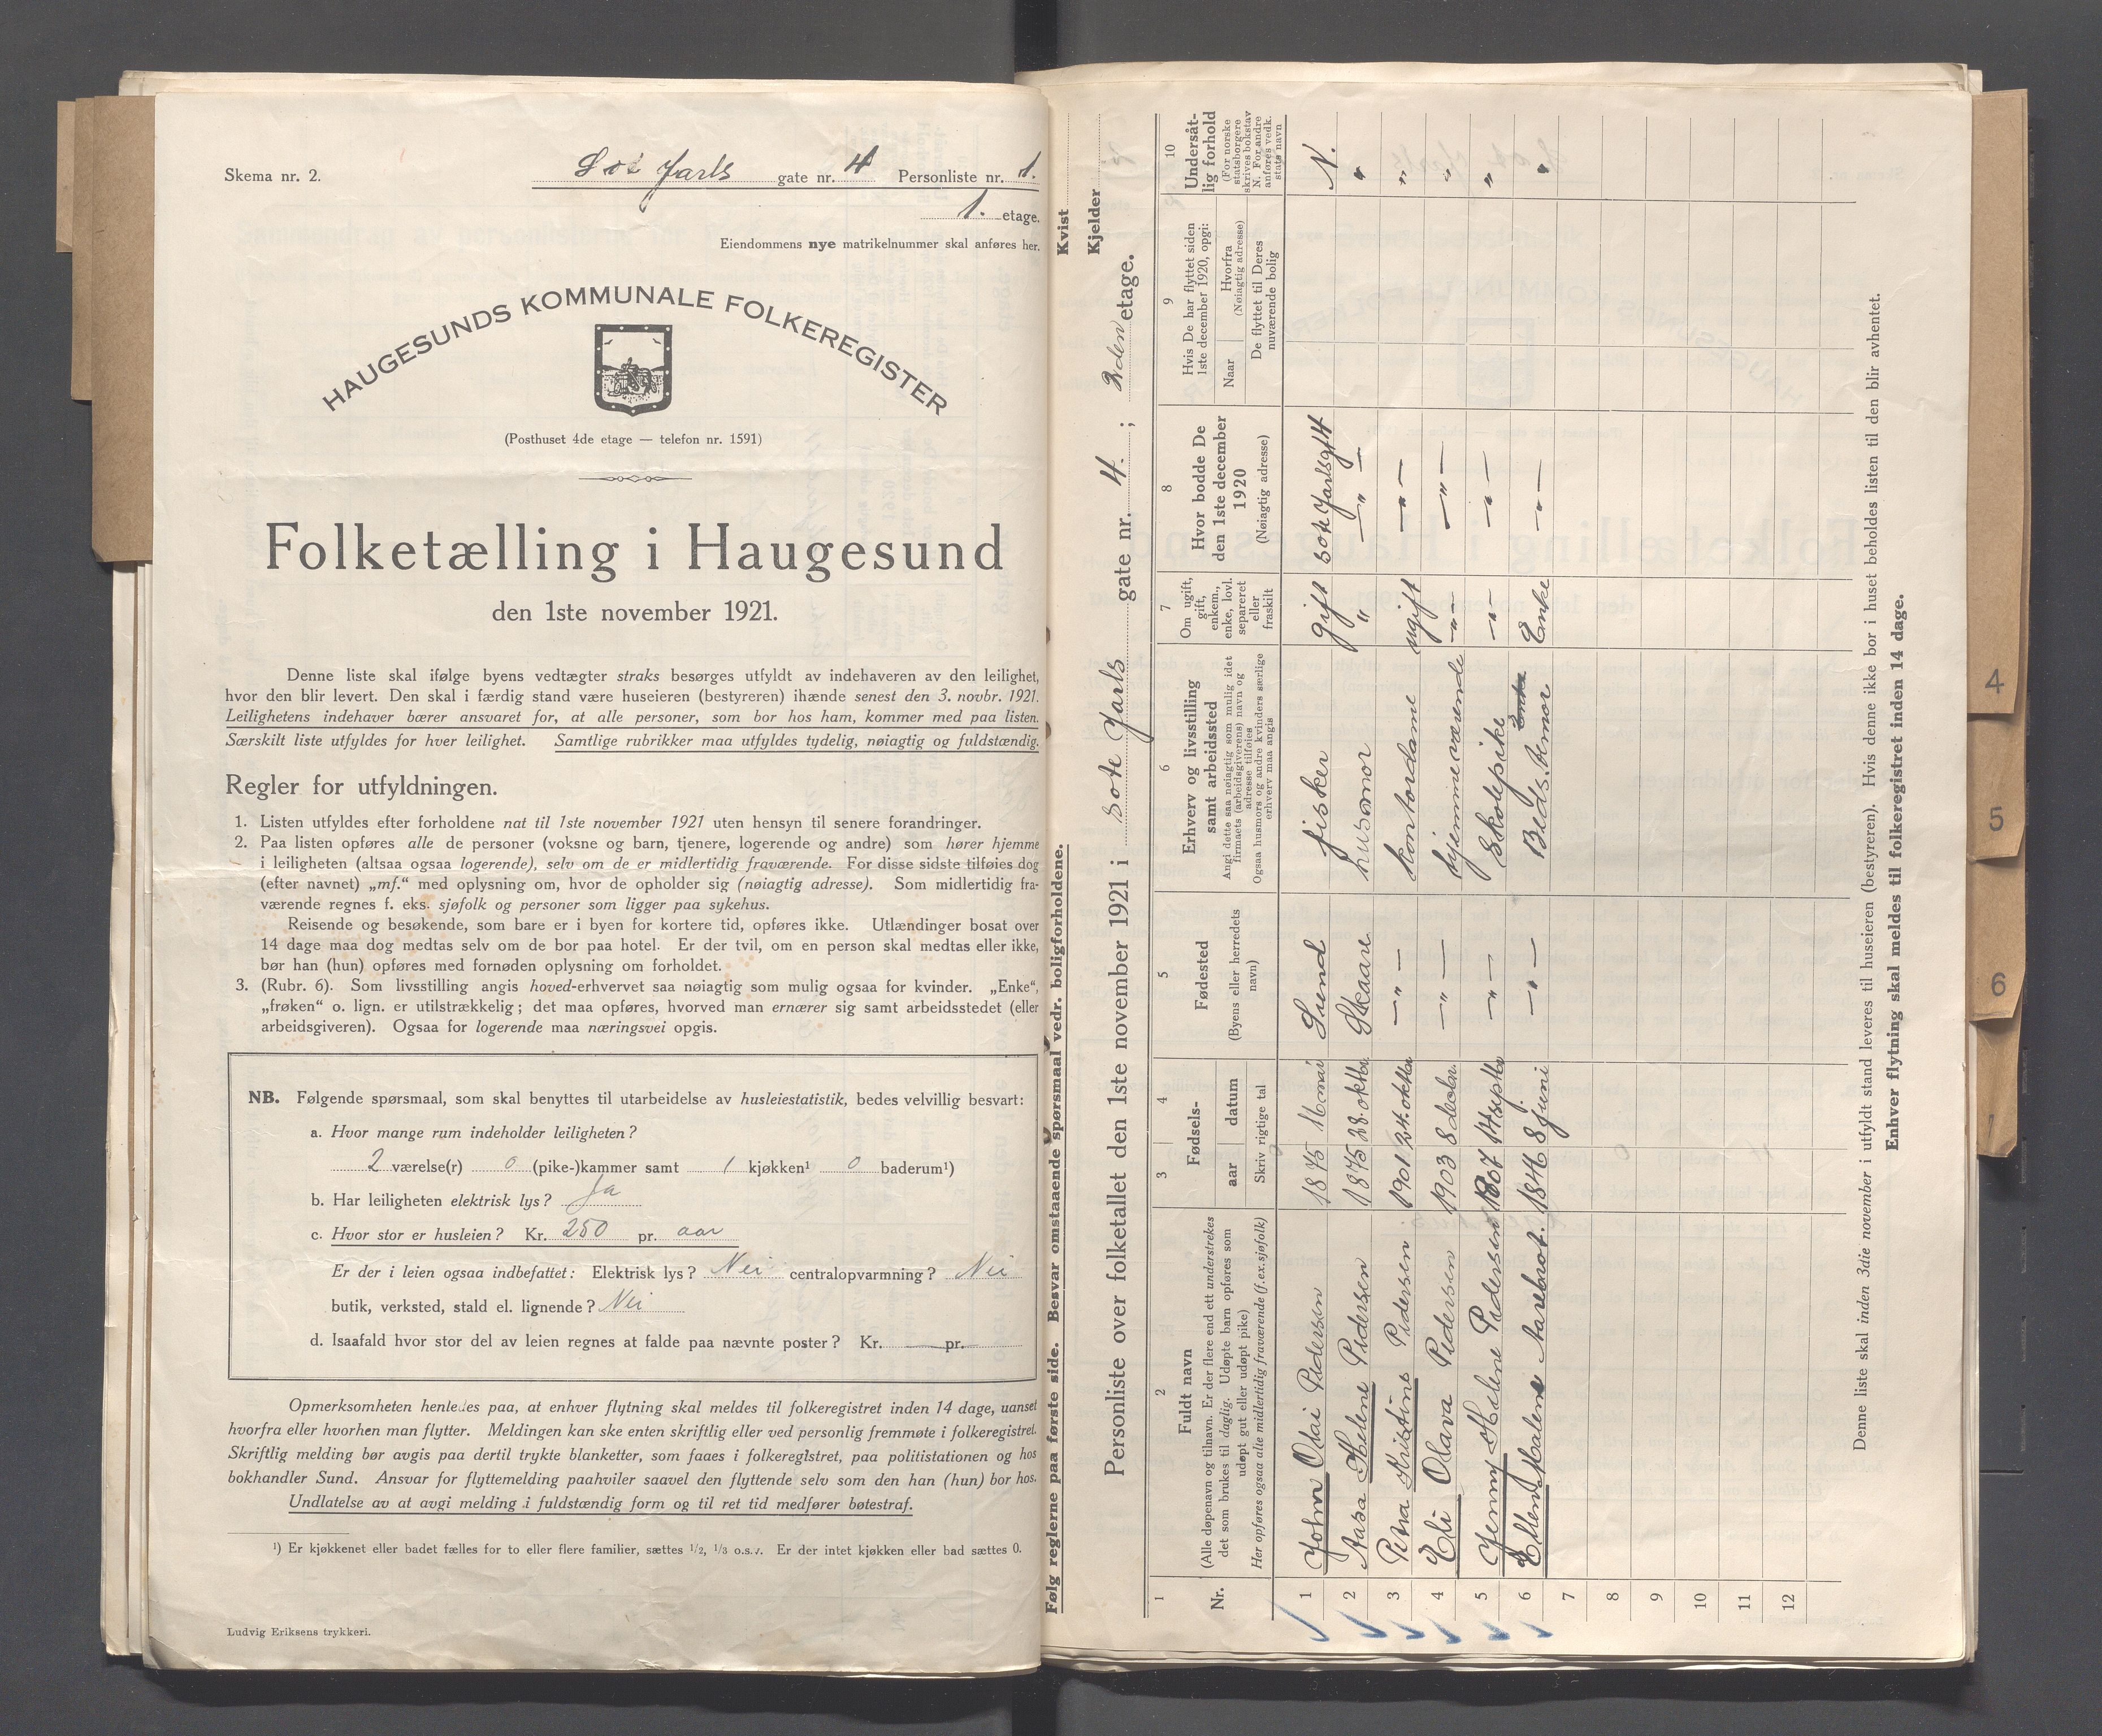 Skema nr. 2.
Sot Jarls gate nr. 4 Personliste nr. 1.
1. etage.
Eiendommens nye matrikelnummer skal anføres her.
HAUGESUNDS KOMMUNALE FOLKEREGISTER
(Posthuset 4de etage — telefon nr. 1591)
Folketælling i Haugesund
den 1ste november 1921.
Denne liste skal ifølge byens vedtægter straks besørges utfyldt av indehaveren av den leilighet,
hvor den blir levert. Den skal i færdig stand være huseieren (bestyreren) ihænde senest den 3. novbr. 1921.
Leilighetens indehaver bærer ansvaret for, at alle personer, som bor hos ham, kommer med paa listen.
Særskilt liste utfyldes for hver leilighet. Samtlige rubrikker maa utfyldes tydelig, nøiagtig og fuldstændig.
Regler for utfyldningen.
1. Listen utfyldes efter forholdene nat til 1ste november 1921 uten hensyn til senere forandringer.
2. Paa listen opføres alle de personer (voksne og barn, tjenere, logerende og andre) som hører hjemme
i leiligheten (altsaa ogsaa logerende), selv om de er midlertidig fraværende. For disse sidste tilføies dog
(efter navnet) „mf.“ med oplysning om, hvor de opholder sig (nøiagtig adresse). Som midlertidig fra-
værende regnes f. eks. sjøfolk og personer som ligger paa sykehus.
Reisende og besøkende, som bare er i byen for kortere tid, opføres ikke. Utlændinger bosat over
14 dage maa dog medtas selv om de bor paa hotel. Er der tvil, om en person skal medtas eller ikke,
bør han (hun) opføres med fornøden oplysning om forholdet.
3. (Rubr. 6). Som livsstilling angis hoved-erhvervet saa nøiagtig som mulig ogsaa for kvinder. „Enke“,
„frøken“ o. lign. er utilstrækkelig; det maa opføres, hvorved man ernærer sig samt arbeidsstedet (eller
arbeidsgiveren). Ogsaa for logerende maa næringsvei opgis.
NB. Følgende spørsmaal, som skal benyttes til utarbeidelse av husleiestatistik, bedes velvillig besvart:
a. Hvor mange rum indeholder leiligheten?
2 værelse(r) 0 (pike-)kammer samt 1 kjøkken¹ 0 baderum¹)
b. Har leiligheten elektrisk lys? Ja
c. Hvor stor er husleien? Kr. 250 pr. aar
Er der i leien ogsaa indbefattet: Elektrisk lys? Nei centralopvarmning? Nei
butik, verksted, stald el. lignende? Nei
d. Isaafald hvor stor del av leien regnes at falde paa nævnte poster? Kr. — pr.
Opmerksomheten henledes paa, at enhver flytning skal meldes til folkeregistret inden 14 dage, uanset
hvorfra eller hvorhen man flytter. Meldingen kan ske enten skriftlig eller ved personlig fremmøte i folkeregistret.
Skriftlig melding bør avgis paa dertil trykte blanketter, som faaes i folkeregistret, paa politistationen og hos
bokhandler Sund. Ansvar for flyttemelding paahviler saavel den flyttende selv som den han (hun) bor hos.
Undlatelse av at avgi melding i fuldstændig form og til ret tid medfører bøtestraf.
¹) Er kjøkkenet eller badet fælles for to eller flere familier, sættes 1/2, 1/3 o.s.v. Er der intet kjøkken eller bad sættes 0.
Ludvig Eriksens trykkeri.
Følg reglerne paa første side. Besvar omstaaende spørsmaal vedr. boligforholdene.
Kvist
Kjelder
Personliste over folketallet den 1ste november 1921 i Sote Jarls gate nr. 4. ; 2den etage.
1 2 3 4 5 6 7 8 9 10
Nr.
Fuldt navn
(Alle døpenavn og tilnavn. Er der flere end ett understrekes
det som brukes til daglig. Udøpte barn opføres som
udøpt gut eller udøpt pike)
Her opføres ogsaa alle midlertidig fraværende (f.ex.sjøfolk)
Fødsels-
aar datum
Skriv rigtige tal
Fødested
(Byens eller herredets
navn)
Erhverv og livsstilling
samt arbeidssted
Angi dette saa nøiagtig som mulig idet
firmaets (arbeidsgiverens) navn og
adresse tilføies
Ogsaa husmors og andre kvinders særlige
erhverv maa angis
Om ugift,
gift,
enkem.,
enke, lovl.
separeret
eller
fraskilt
Hvor bodde De
den 1ste december
1920
(Nøiagtig adresse)
Hvis De har flyttet siden
1ste december 1920, opgi:
Naar
Hvorfra
(Nøiagtig adresse)
De flyttet til Deres
nuværende bolig
Undersåt-
lig forhold
(For norske
statsborgere
skrives bokstav
N. For andre
anføres vedk.
stats navn
1 John Osai Pedersen 1875 16 mai Sund fisker gift Sote Jarlsgt 4 N.
2 Aasa Helene Pedersen 1875 28. oktbr Skaare husmor " — " — "
3 Petra Kristine Pedersen 1901 24. oktbr — " — kontordame ugift — " — "
4 Eli Olava Pedersen 1903 8 decbr — " — hjemmeværende — " — — " — "
5 Jenny Helene Pedersen 1907 14 septbr — " — Skolepike — " — — " — "
6 Ellen Malene Aarebrot. 1846 8 juni — " — Bedstemor Enke — " — "
7
8
9
10
11
12
Denne liste skal inden 3die november i utfyldt stand leveres til huseieren (bestyreren). Hvis denne ikke bor i huset beholdes listen til den blir avhentet.
Enhver flytning skal meldes til folkeregistret inden 14 dage.
4
5
6